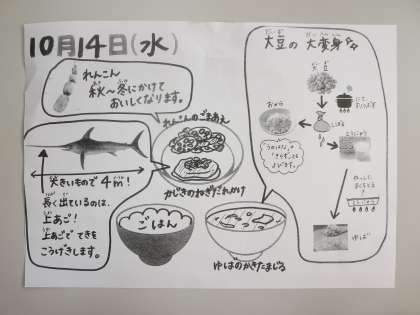 10月14日(水)
れんこん
秋〜冬にかけて
おいしくなります。
れんこんのごまあえ
かじきのねぎだれかけ
大きいもので4m!
長く出ているのは、
上あご!
上あごで てきを
こうげきします。
ごはん
ゆばのかきたまじる
大豆の 大変身
だいず
大豆
しぼる
おから
とうにゅう
ゆば